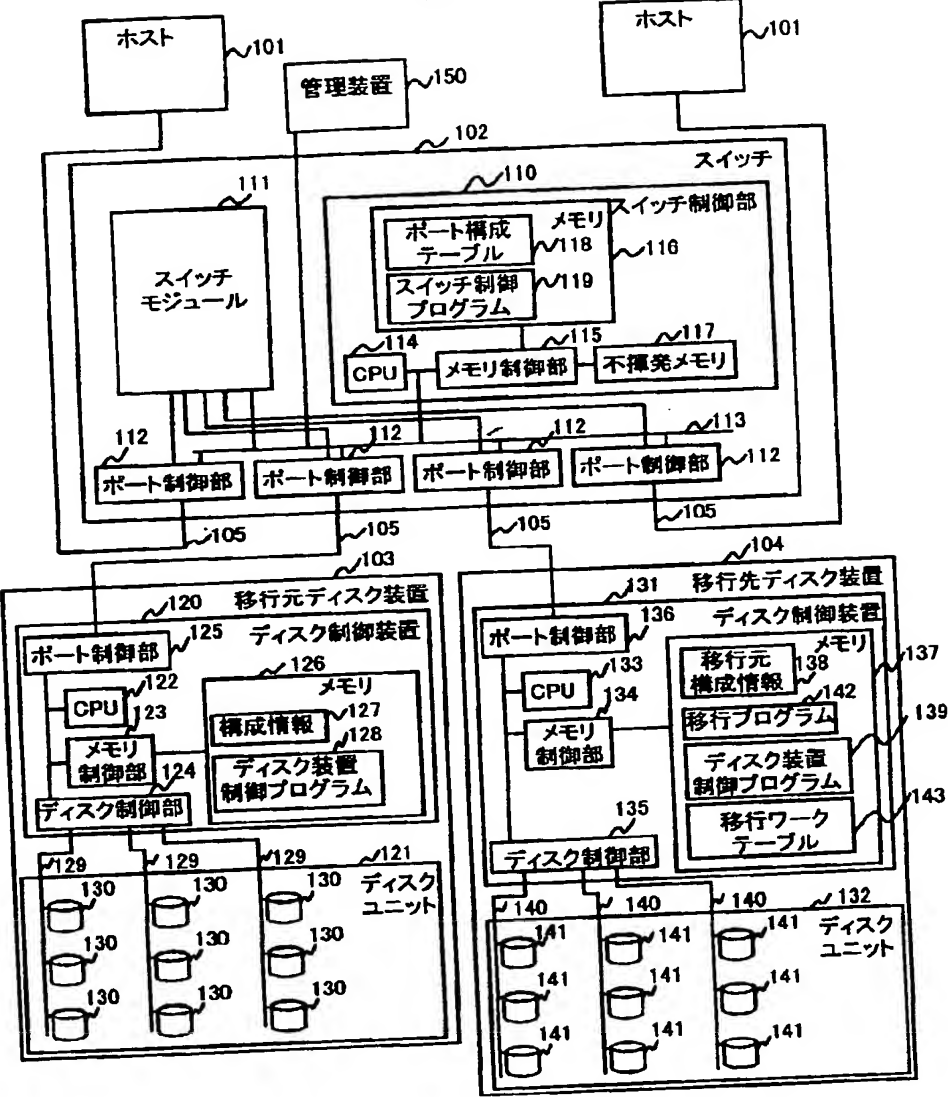 ホスト
101
ホスト
101
管理装置
150
102
スイッチ
110
スイッチ制御部
111
スイッチ
モジュール
メモリ
116
ポート構成
テーブル
118
スイッチ制御
プログラム
119
114
CPU
115
メモリ制御部
117
不揮発メモリ
113
112
ポート制御部
112
ポート制御部
112
ポート制御部
112
ポート制御部
105
105
105
105
103
移行元ディスク装置
120
ディスク制御装置
ポート制御部
125
122
CPU
123
メモリ
制御部
124
ディスク制御部
126
メモリ
127
構成情報
128
ディスク装置
制御プログラム
129
129
129
121
ディスク
ユニット
130
130
130
130
130
130
130
130
130
104
移行先ディスク装置
131
ディスク制御装置
ポート制御部
136
133
CPU
134
メモリ
制御部
メモリ
137
移行元
構成情報
138
142
移行プログラム
139
ディスク装置
制御プログラム
143
移行ワーク
テーブル
135
ディスク制御部
140
140
140
132
ディスク
ユニット
141
141
141
141
141
141
141
141
141